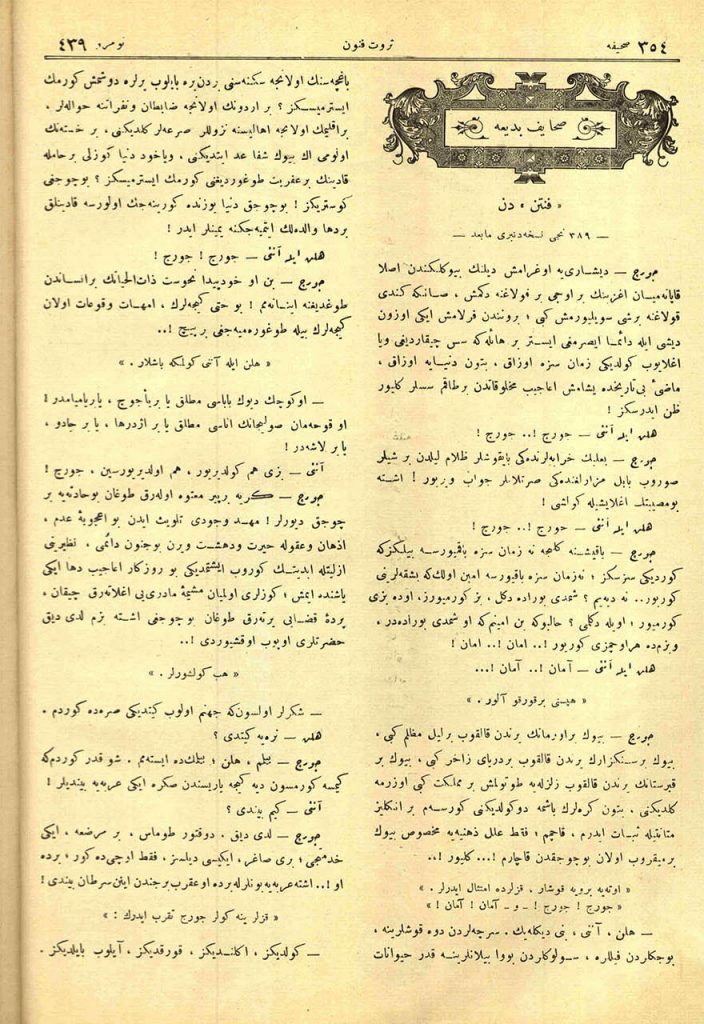 ٣٥٤ صحیفه
ثروت فنون
نومرو ٤٣٩
صحایف بدیعه
« فنتن » دن
— ٣٨٩ نجی نسخه‌دنبری مابعد —
جورج — دیشاری‌یه اوغرامش دیلنك بیوکلکندن اصلا
قاپانه‌میان اغزینك براوجی بر قولاغنه دکمش ، صانکه کندی
قولاغنه برشی سویلیورمش کبی ؛ بروننندن فرلامش ایکی اوزون
دیشی ایله دائما ایصرمغی ایستر بر هائله‌که سس چیقاردیغی ویا
اغلایوب کولدیکی زمان سزه اوزاق ، بتون دنیایه اوزاق ،
ماضئ بی‌تاریخده یشامش اعاجیب مخلوقاتدن برطاقم سسلر کلیور
ظن ایدرسکز !
هلن ایله آننی — جورج !.. جورج !
جورج — بعلبك خرابه‌لرنده‌کی بایقوشلر ظلام لیلدن بر شیلر
صوروب بابل مزارلغنده‌کی صرتلانلر جواب ویریور ! اشته
بومصیبتك اغلایشیله کولشی !
هلن ایله آننی — جورج !.. جورج !
جورج — باقیشنه کلنجه نه زمان سزه باقیورسه بیلکزکه
کوردیکی سزسکز ؛ نه‌زمان سزه باقیورسه امین اولك‌که بشقه‌لرینی
کوریور.. نه دیه‌یم ؟ شمدی بوراده دکل ، بز کورمیورز، اوده بزی
کورمیور ؛ اویله دکلمی ؟ حالبوکه بن امینم‌که او شمدی بوراده‌در ،
وبزم‌ده هراوچمزی کوریور !.. امان !.. امان !
هلن ایله آننی — آمان !.. آمان !...
« هپسنی برقورقو آلور . »
جورج — بیوك براورمانك برندن قالقوب برلیل مظلم کبی ،
بیوك برسنکزارك برندن قالقوب بردریای زاخر کبی ، بیوك بر
قبرستانك برندن قالقوب زلزله‌یه طوتولمش بر مملکت کبی اوزرمه
کلدیکنی ، بتون کره‌لرك باشمه دوکولدیکنی کورسه‌م بر انکلیز
متانتیله ثبات ایدرم ، قاچمم ؛ فقط علل ذهنیه‌یه مخصوص بیوك
برمیقروب اولان بوچوجقدن قاچارم !... کلیور !..
« اوته‌یه برویه قوشار ، قزلرده امتثال ایدرلر . »
« جورج ! جورج ! – و – آمان ! آمان ! »
— هلن ، آننی ، بنی دیکله‌یك . سرچه‌لردن دوه قوشلرینه ،
بوجکلردن فیللره ، سولوکلردن بووا ییلانلرینه قدر حیوانات
باغچه‌سنك اولانجه سکنه‌سنی بردن‌بره بایلوب یرلره دوشمش کورمك
ایسترمیسکز ؟ بر اردونك اولانجه ضابطان ونفراتنه حواله‌لر ،
براقلیمك اولانجه اهالیسنه نزوللر صرعه‌لر کلدیکنی ، بر خسته‌نك
اولومی اك بیوك شفا عد ایتدیکنی ، ویاخود دنیا کوزلی برحامله
قادینك برعفریت طوغوردیغنی کورمك ایسترمیسکز ؟ بوچوجغی
کوستریکز ! بوچوجق دنیا یوزنده کورینه‌جك اولورسه قادینلق
بردها والده‌لك ایتمیه‌جکنه یمینلر ایدر !
هلن ایله آننی — جورج ! جورج !
جورج — بن او خودپیدا نحوست ذات‌الحیاتك برانساندن
طوغدیغنه اینانه‌مم ! بو حتی کیجه‌لرك ، امهات وقوعات اولان
کیجه‌لرك بیله طوغوره‌میه‌جغی برپیچ !..
« هلن ایله آننی کولمکه باشلار . »
— اوکوچك دیوك باباسی مطلق یا بریأجوج ، یابریامیامدر !
او قوجه‌مان صولیجانك اناسی مطلق یا بر اژدرها ، یا بر جادو ،
یا بر لاشه‌در !
آننی — بزی هم کولدیریور ، هم اولدیریورسین ، جورج !
جورج — کریه برپیر معتوه اوله‌رق طوغان بوحادثه‌یه بر
چوجق دیورلر ! مهد وجودی تلویث ایدن بو اعجوبۀ عدم ،
اذهان وعقوله حیرت ودهشت ویرن بوجنون دائمی ، نظیرینی
ازلیتله ابدیتك کوروب ایشتمدیکی بو روزکار اعاجیب دها ایکی
یاشنده ایمش ؛ کوزلری اولمیان مشیمۀ مادری‌یی اغلاته‌رق چیقان ،
پردۀ قضایی یرته‌رق طوغان بوچوجغی اشته بزم لدی دیق
حضرتلری اوپوب اوقشیوردی !..
« هپ کولشورلر . »
— شکرلر اولسون‌که جهنم اولوب کیتدیکی صره‌ده کوردم .
هلن — نره‌یه کیتدی ؟
جورج — بیلم ، هلن ؛ بیلمك‌ده ایسته‌مم . شو قدر کوردم‌که
کیمسه کورمسون دیه کیجه یاریسندن صکره ایکی عربه‌یه بیندیلر !
آننی — کیم بیندی ؟
جورج — لدی دیق . دوقتور طوماس ، بر مرضعه ، ایکی
خدمتجی ؛ بری صاغر ، ایکیسی دیلسز ، فقط اوچی‌ده کور ؛ برده
او !.. اشته عربه‌یه بونلرله برده او عقرب برجندن اینن سرطان بیندی !
« قزلر ینه کولر جورج تقرب ایدرك : »
— کولدیکز ، اکلندیکز ، قورقدیکز ، آیلوب بایلدیکز .